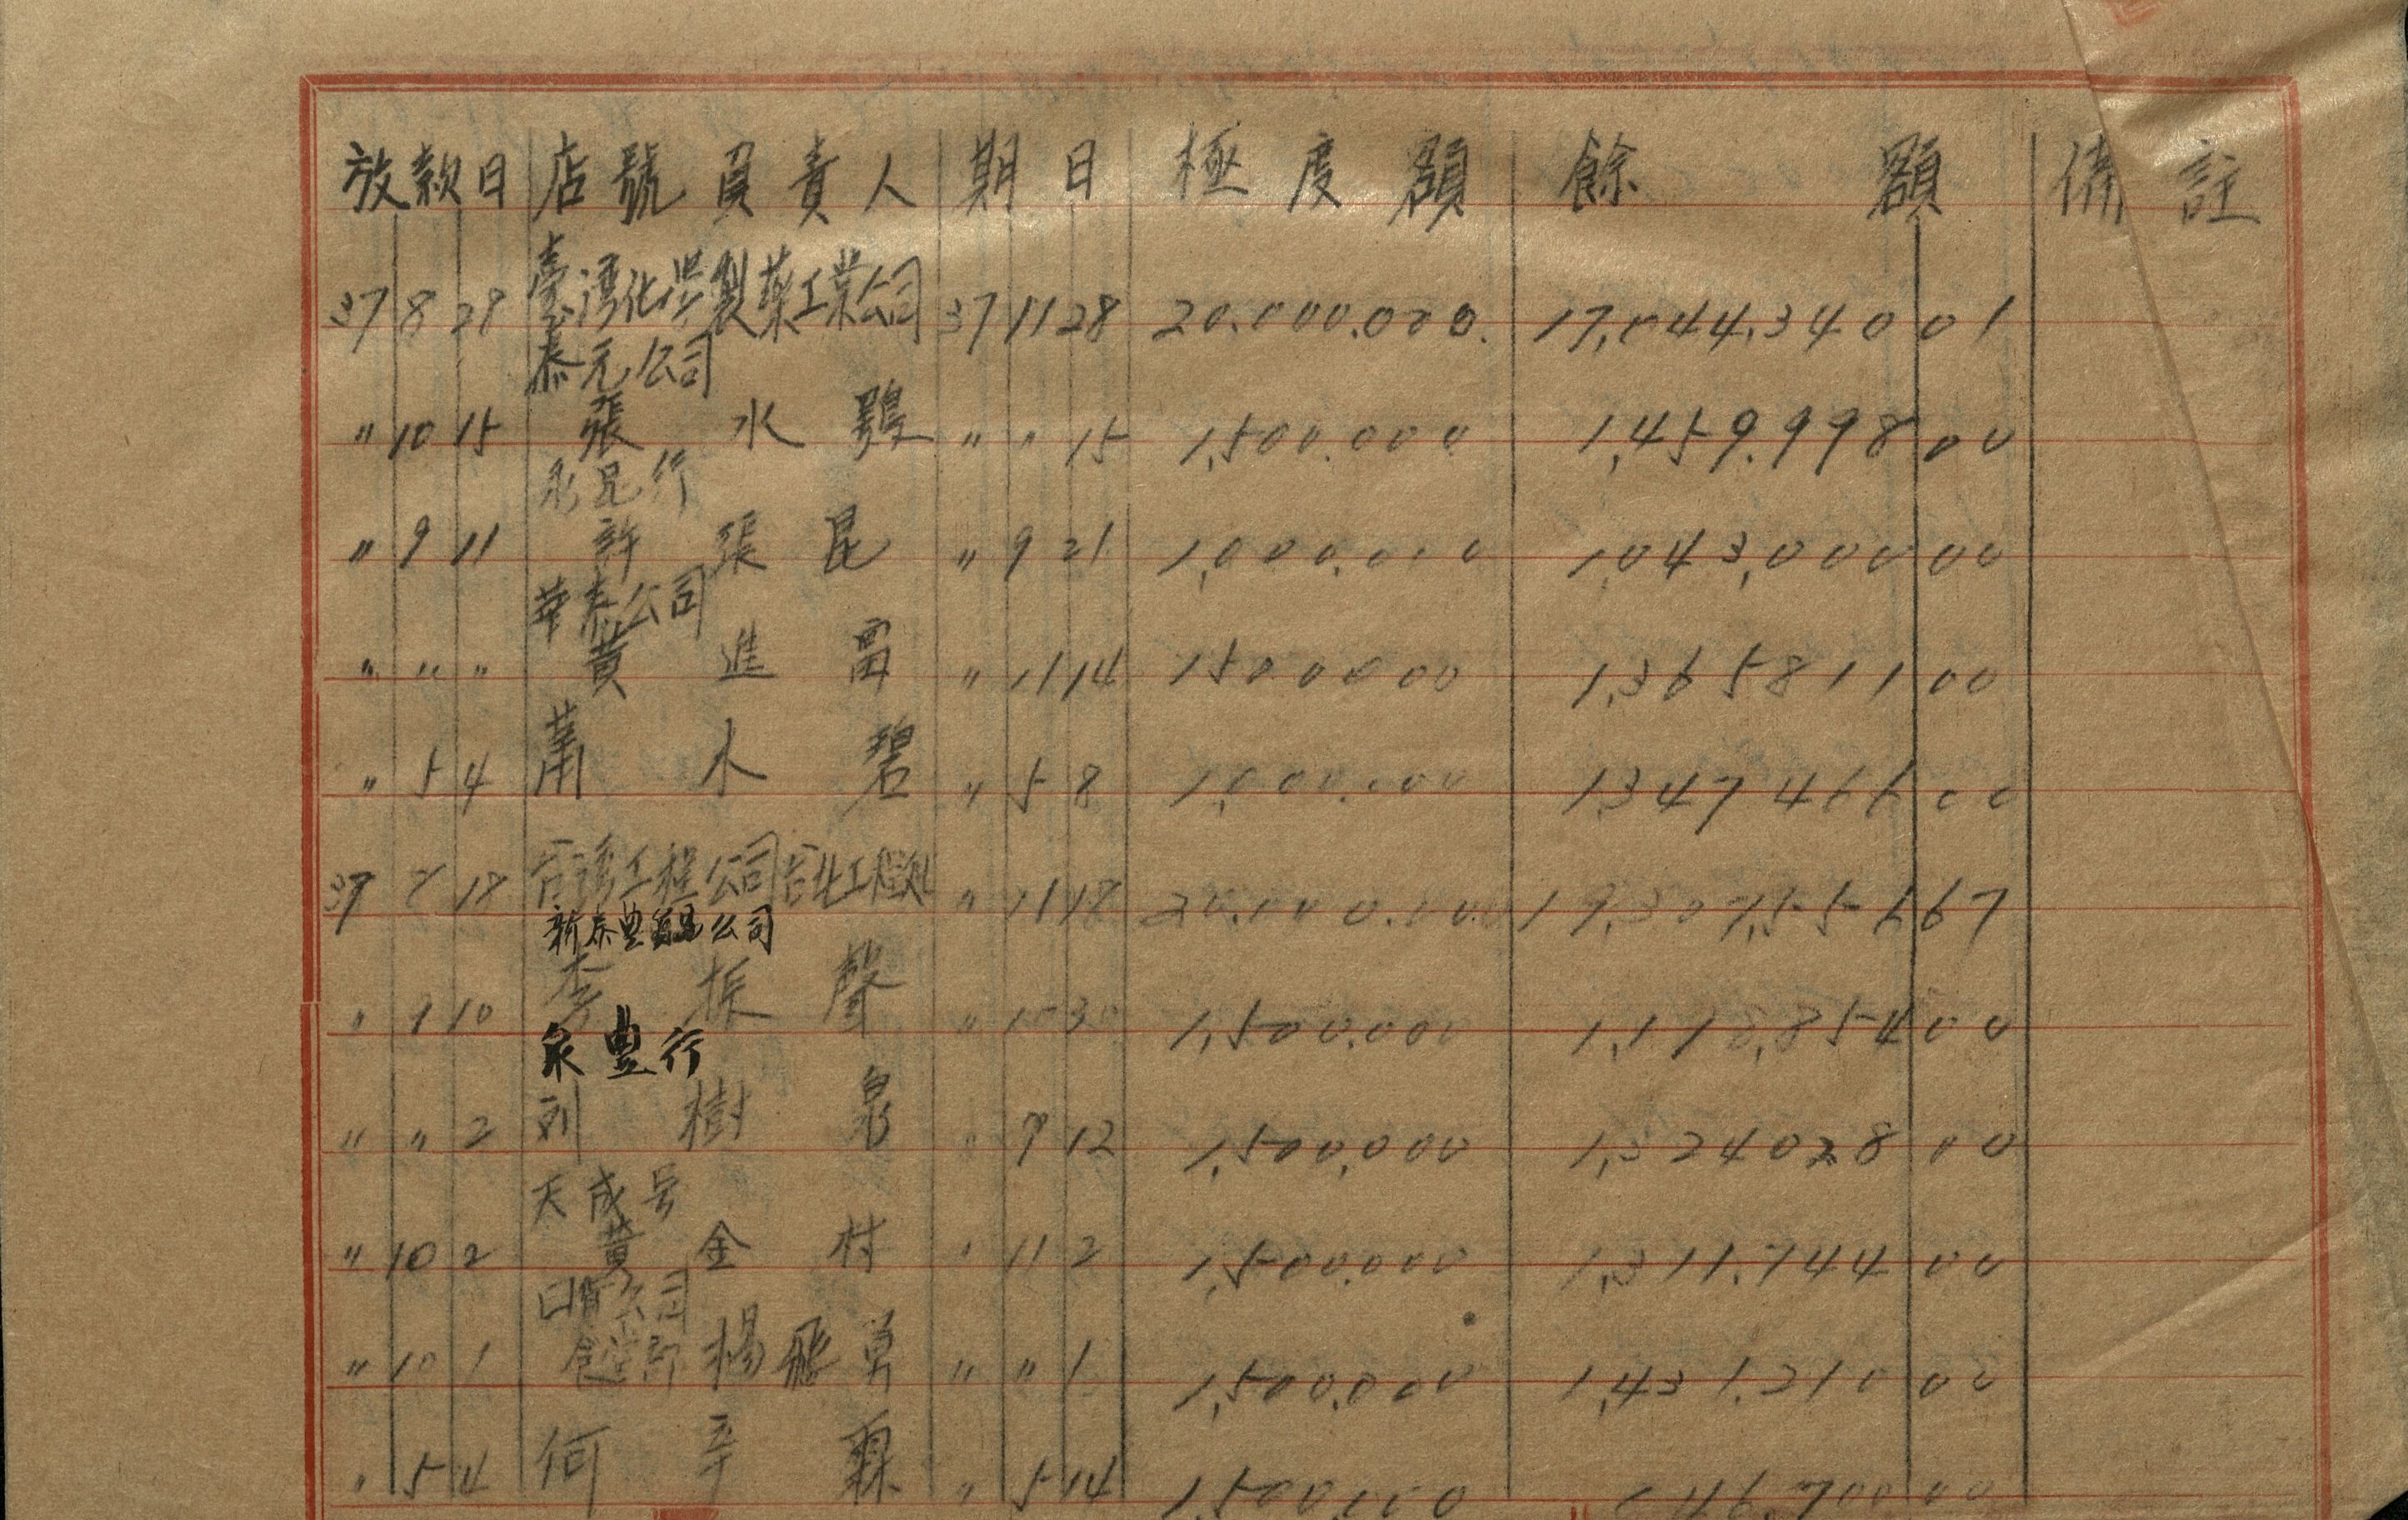 放款日 店號負責人 期日 極度額 餘額 備註
37 8 28 臺灣化学製薬工業公司 37 11 28 20,000,000. 17,044,340 01
泰元公司
〃 10 15 張水鷄 〃 〃 15 1,500,000 1,459,998 00
永昆行
〃 9 11 許張昆 〃 9 21 1,000,000 1,043,000 00
華泰公司
〃 〃 〃 黄進富 〃 11 14 1500000 1,365811 00
〃 5 4 蕭水碧 〃 5 8 1,000,000 1347466 00
37 18 台湾工程公司台北工程処 〃 11 18 67
新泰豊 公司
〃 9 10 李振聲 〃 10 30 1,500,000 1,118,854 00
泉豊行
〃 〃 2 刘樹泉 〃 9 12 1,500,000 1,324028 00
天成号
〃 10 2 黄金村 〃 11 2 1,500,000 1,311,744 00
公司
〃 10 1 食堂部 楊飛勇 〃 〃 1 1,500,000 1,431,310 00
〃 5 4 何辛 〃 5 14 1,500,000 00